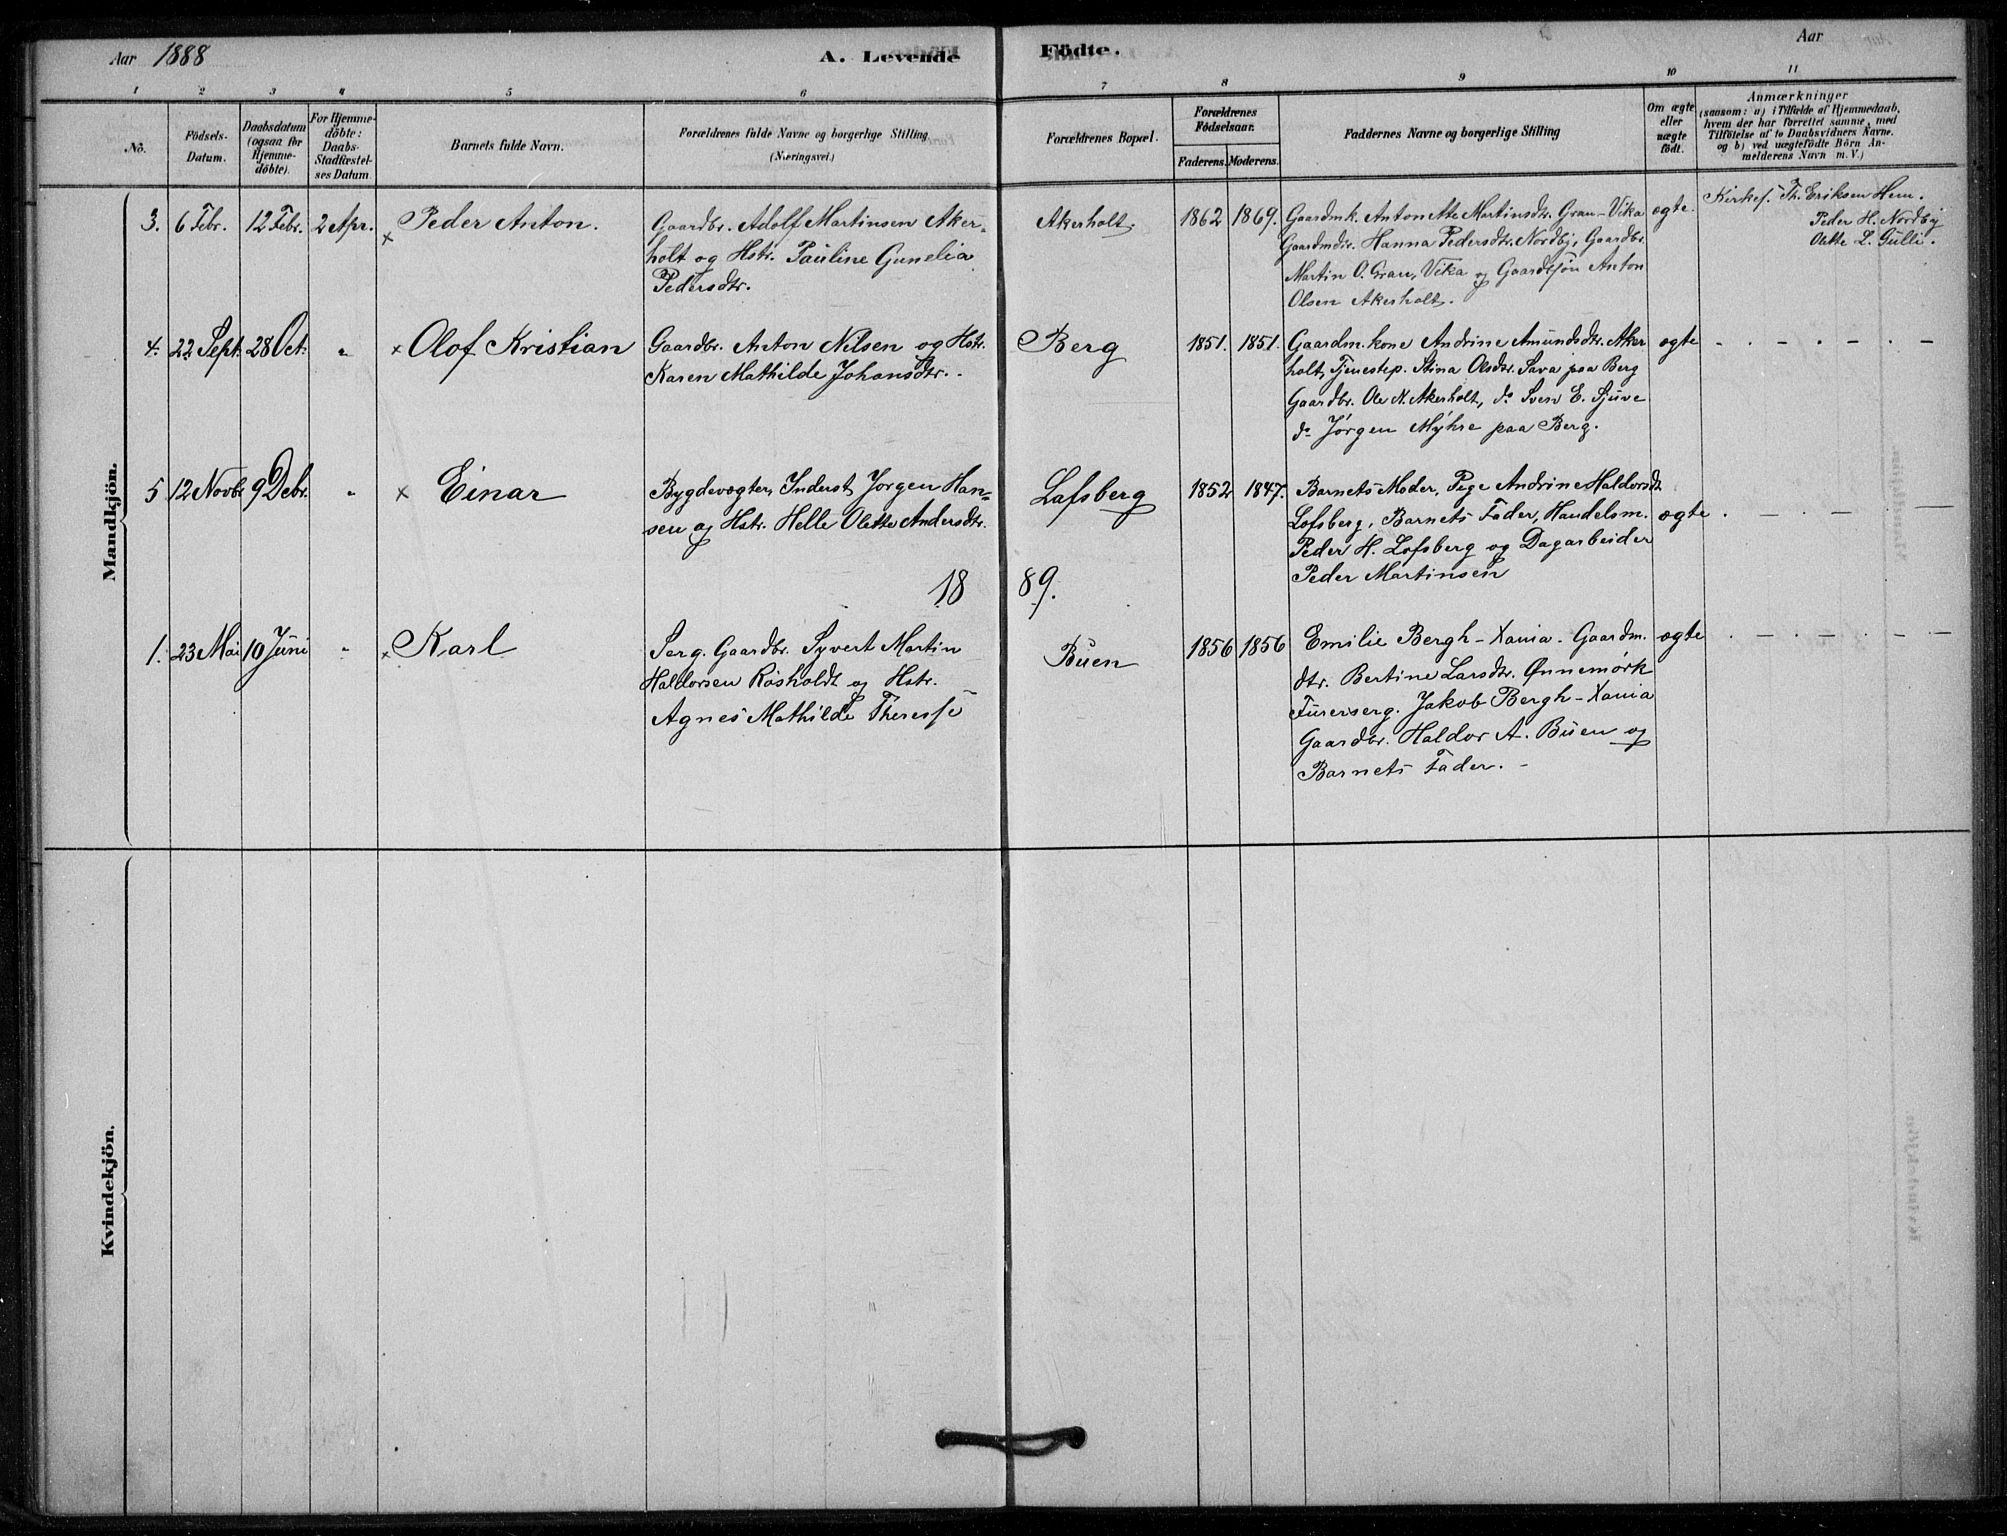 Aar 1888 A. Levende Födte. Aar
1 2 3 4 5 6 7 8 9 10 11
No. Födsels-Datum. Daabsdatum (ogsaa for Hjemmedöbte). For Hjemmedöbte: Daabs-Stadfæstelses Datum. Barnets fulde Navn. Forældrenes fulde Navne og borgerlige Stilling (Næringsvei.) Forældrenes Bopæl. Forældrenes Födselsaar. Faderens. Moderens. Faddernes Navne og borgerlige Stilling Om ægte eller uægte födt. Anmærkninger
(saasom: a) i Tilfælde af Hjemmedaab,
hvem der har forrettet samme, med
Tilföielse af to Daabsvidners Navne.
og b) ved uægtefödte Börn Anmelderens Navn m. V.)
Mandkjön.
3. 6 Febr. 12 Febr. 2 Apr. × Peder Anton.
Gaardbr. Adolf Martinsen Aker-
holt og Hstr. Pauline Gunelia
Pedersdtr.
Akerholt. 1862 1869.
Gaardmk. Antonette Martinsdtr. Gran-Vika
Gaardmdtr. Hanna Pedersdtr. Nordby, Gaardbr.
Martin O. Gran, Vika og Gaardbsøn Anton
Olsen Akerholt.
ægte.
Kirkes. Th. Eriksen Hem.
Peder H. Nordby
Olette L. Gulli.
4. 22 Sept. 28 Oct. " × Olof Kristian
Gaardbr. Anton Nilsen og Hstr.
Karen Mathilde Johansdtr.
Berg 1851. 1851.
Gaardm. kone Andrine Amundsdtr. Aker
holt, Tjenestep. Stina Olsdtr. Sava paa Berg
Gaardbr. Ole N. Akerholt, do Sven E. Sjuve
do Jørgen Myhre paa Berg.
ægte - . - . - . - . -
5 12 Novbr. 9 Debr. " × Einar
Bygdevægter, Inderst Jørgen Han-
sen og Hstr. Helle Olette Andersdtr.
Lofsberg 1852 1847.
Barnets Moder, Pige Andrine Haldorsdt
Lofsberg, Barnets Fader, Handelsm.
Peder H. Lofsberg og Dagarbeider
Peder Martinsen
ægte . - . - . -
1889.
1. 23 Mai 10 Juni " × Karl
Serg. Gaardbr. Syvert Martin
Haldorsen Røsholdt og Hstr.
Agnes Mathilde Therese
Buen 1856 1856
Emilie Bergh - Xania. Gaardm.
dtr. Bertine Larsdtr. Ønnemørk
Furerserg. Jakob Bergh - Xania
Gaardbr. Haldor A. Buen og
Barnets Fader. -
ægte . - . - . - . -
Kvindekjön.